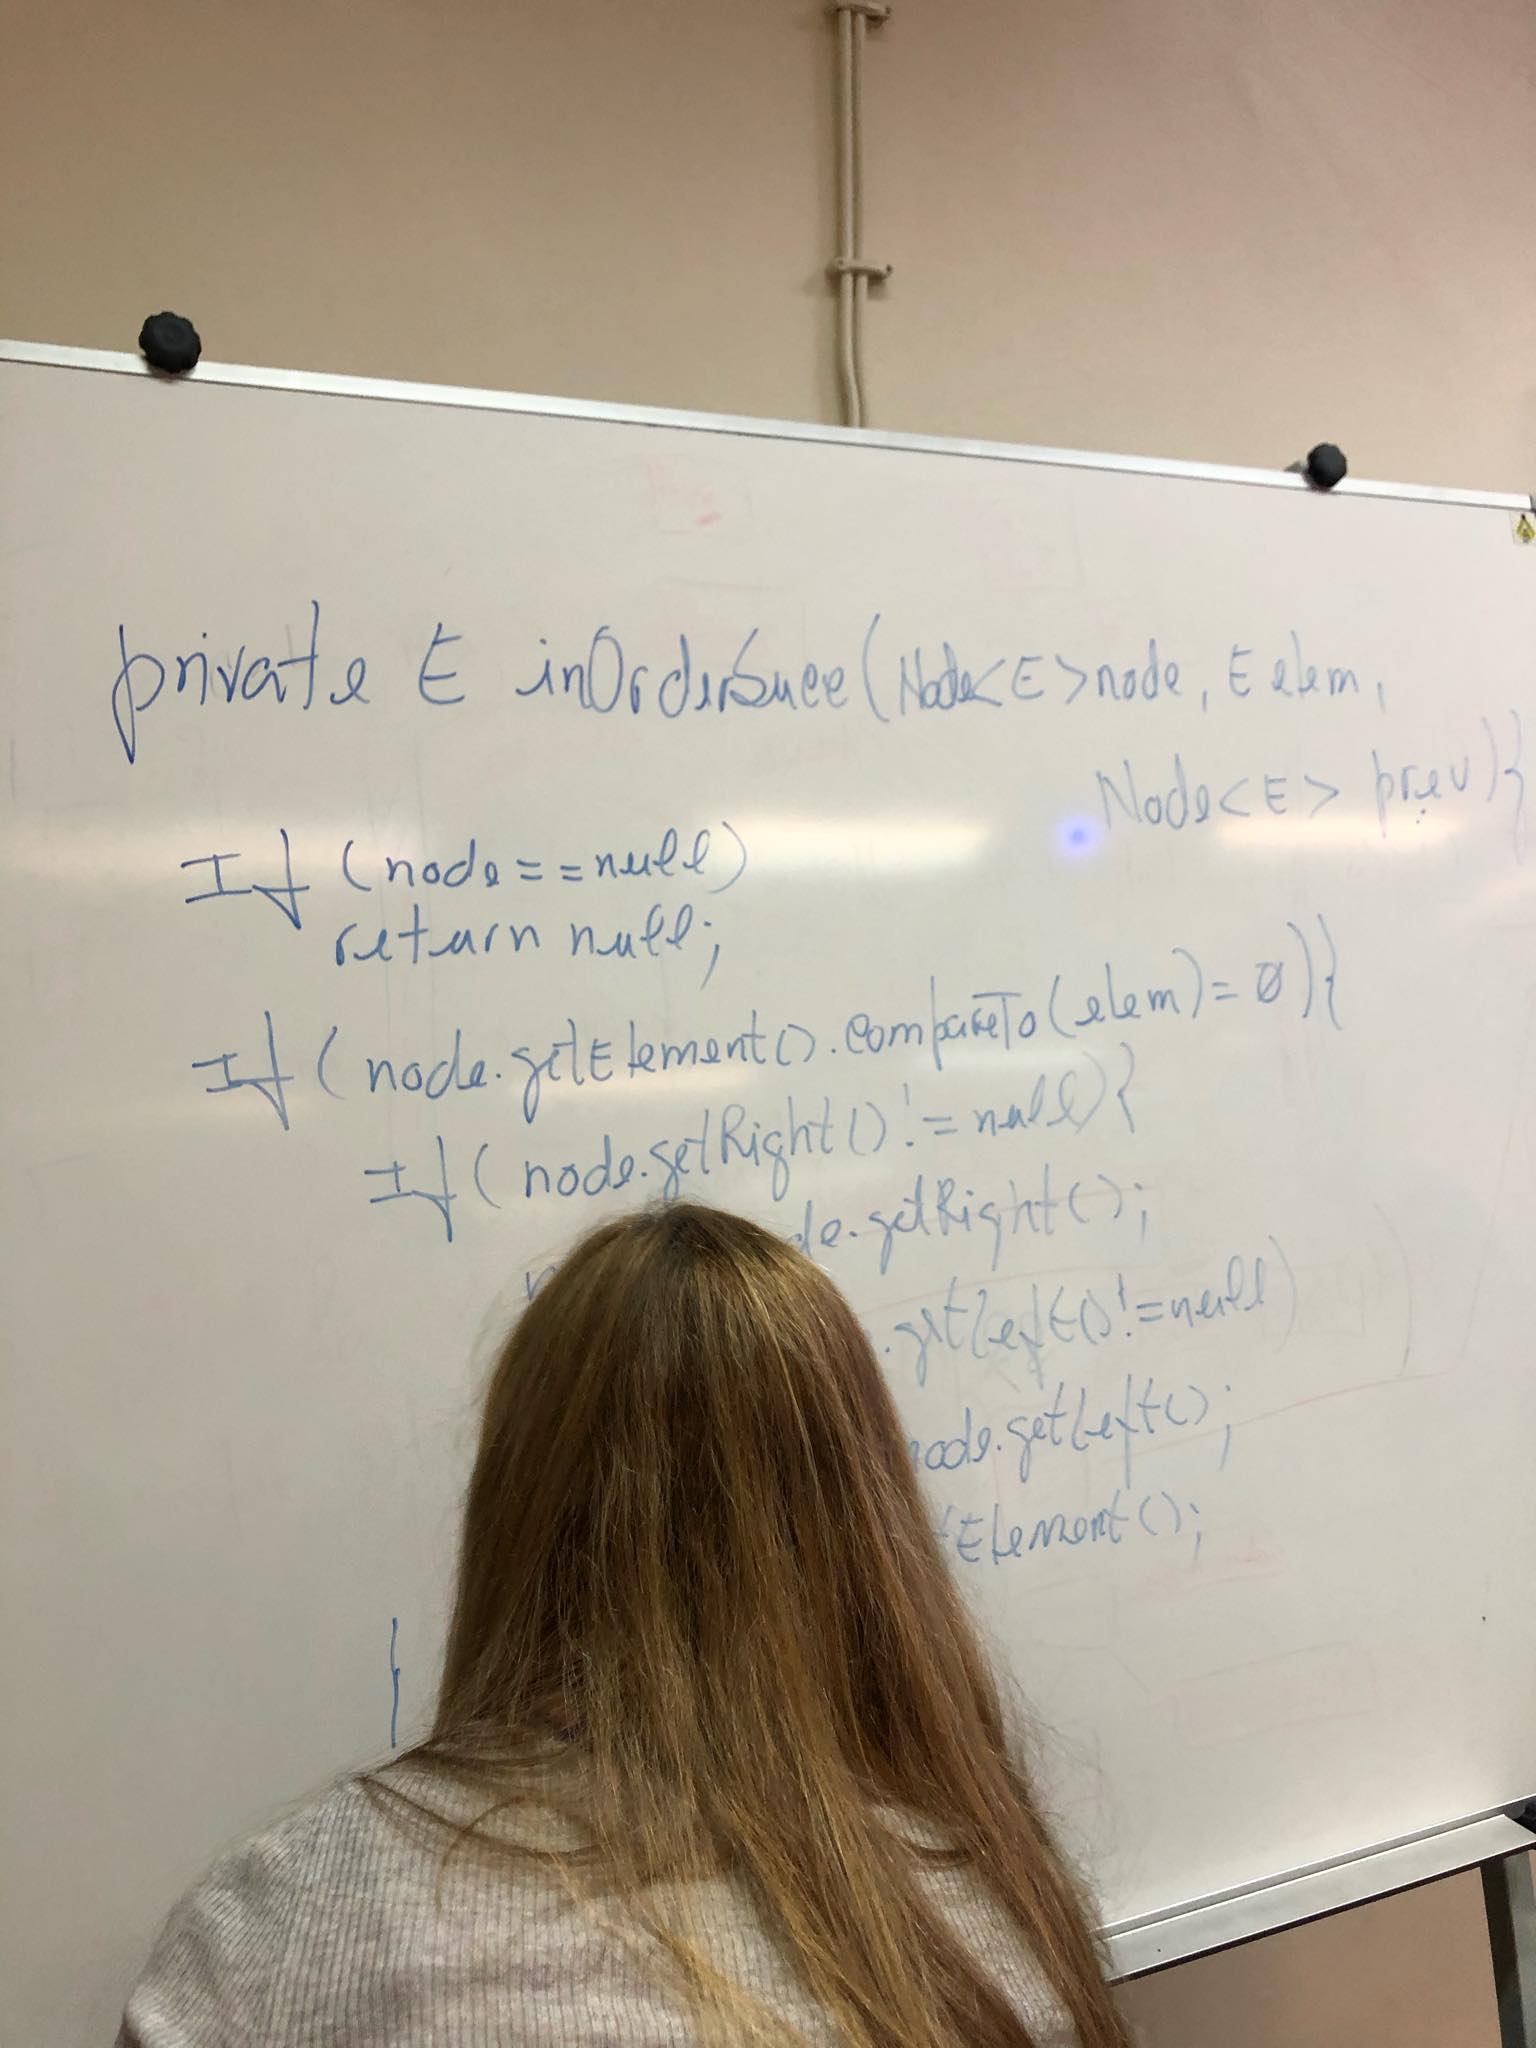 private E inOrderSucc(Node<E> node, E elem,
Node<E> prev){
If (node==null)
return null;
If (node.getElement().compareTo(elem)=0){
If (node.getRight()!=null){
de.getRight();
.getLeft()!=null)
node.getLeft();
tElement();
}